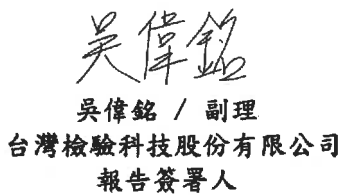 吳偉銘
吳偉銘 / 副理
台灣檢驗科技股份有限公司
報告簽署人